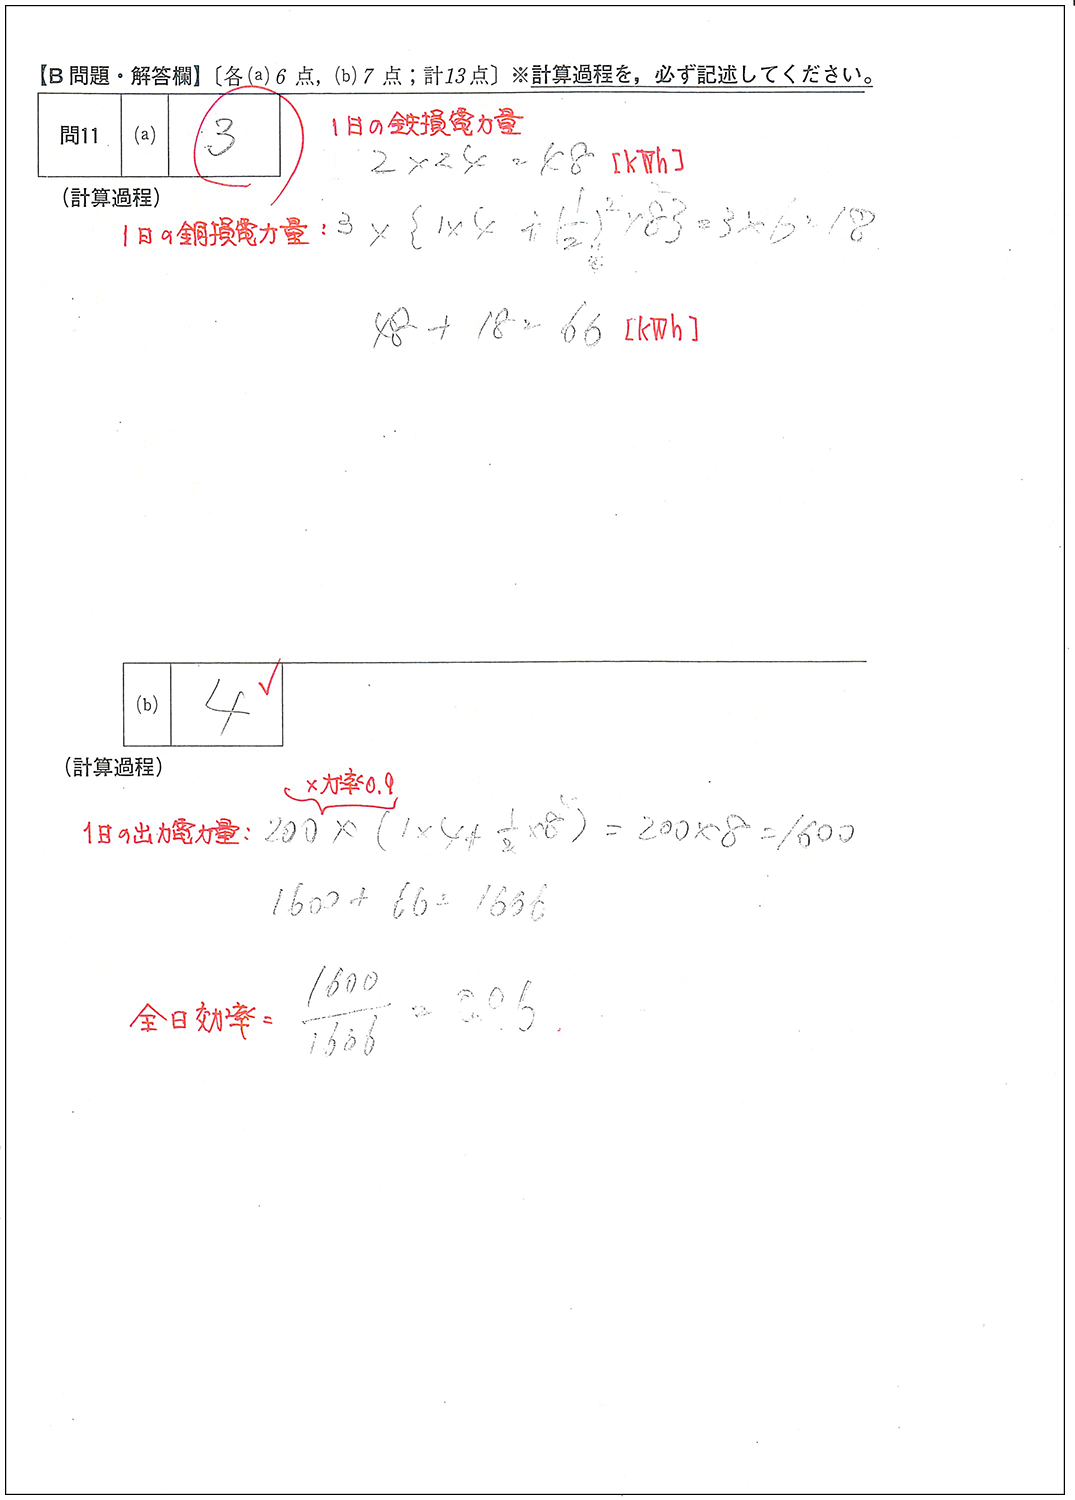 【B問題・解答欄】〔各(a)6点，(b)7点；計13点〕※計算過程を，必ず記述してください。
問11 (a) 3
1日の鉄損電力量
2×24=48 [kWh]
(計算過程)
1日の銅損電力量：3×{1×4+(1/2)²×8}=3×6=18
48+18=66 [kWh]
(b) 4
(計算過程)
×力率0.9
1日の出力電力量：200×(1×4+1/2×8)=200×8=1600
1600+66=1666
全日効率= 1600/1666 =